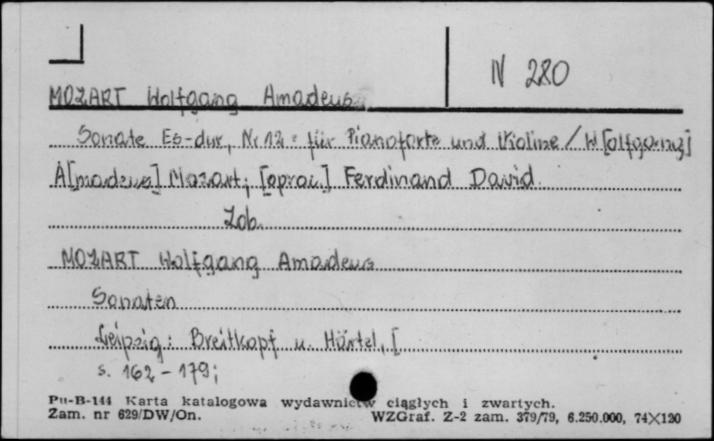 N 280
MOZART Wolfgang Amadeus
Sonate Es-dur, Nr 12 : für Pianoforte und Violine / W[olfgang]
A[madeus] Mozart ; [oprac.] Ferdinand David.
Zob.
MOZART Wolfgang Amadeus
Sonaten
Leipzig : Breitkopf u. Härtel, [
s. 162 - 179 ;
Pu-B-144 Karta katalogowa wydawnictw ciągłych i zwartych.
Zam. nr 629/DW/On. WZGraf. Z-2 zam. 379/79, 6.250.000, 74×120